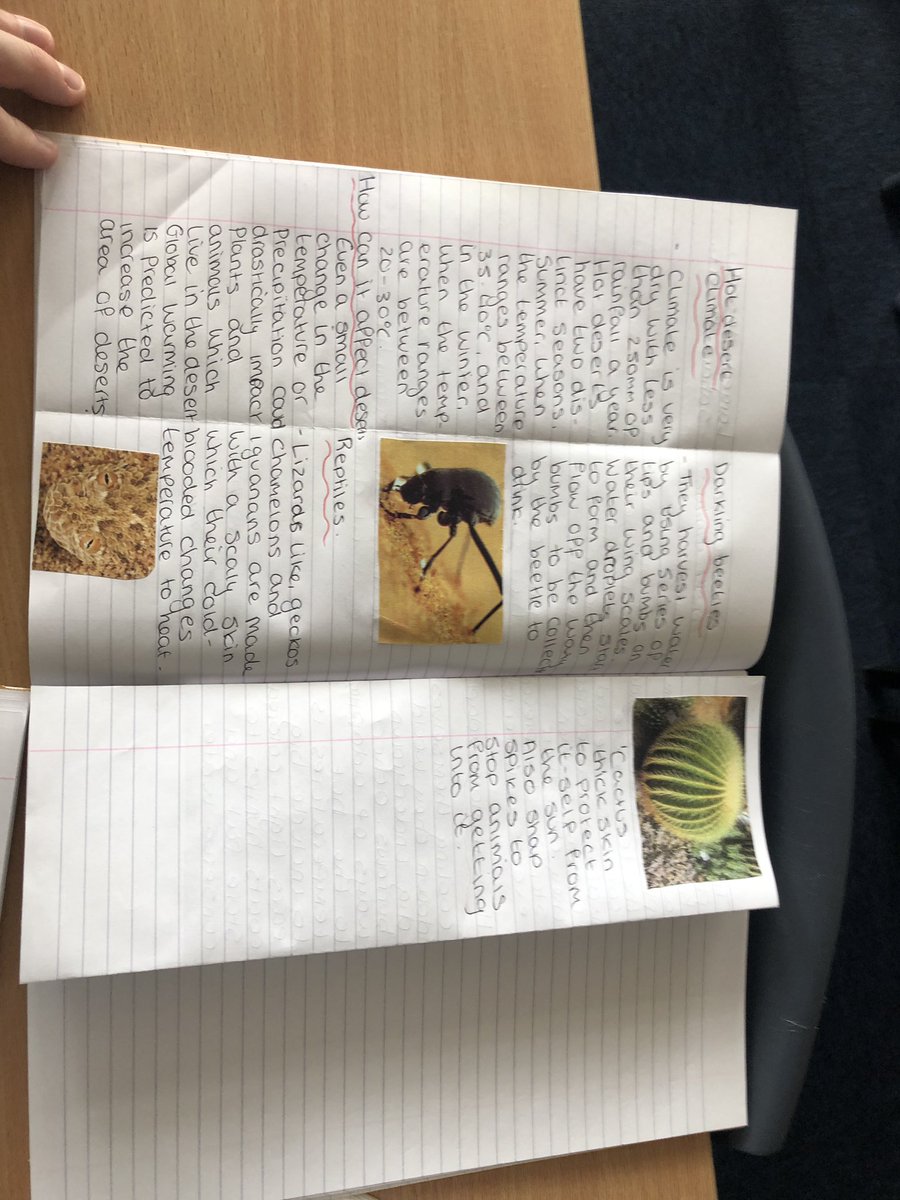 Hot desert
climate
- Climate is very
dry with less
than 250mm of
rainfall a year.
Hot deserts
have two dis-
tinct seasons,
summer, when
the temperature
ranges between
35-40°C, and
in the winter,
when the temp-
erature ranges
are between
20-30°C.
How can it affect desert
Even a small
change in the
temperature or
Precipitation could
drastically impact
Plants and
animals which
Live in the desert
Global warming
is Predicted to
increase the
area of deserts.
Darkling beetles
- They harvest water
by using series of
tips and bumbs on
their wing scales.
Water droplets
to form and then
flow off the
bumbs to be collect
by the beetle to
drink.
Reptiles.
- Lizards like, geckos
chamelons and
iguanans are made
with a scaly skin
which their cold-
blooded changes
temperature to heat.
Cactus
thick skin
to protect
it-self from
the sun.
Also shap
spikes to
Stop animals
from getting
into it.